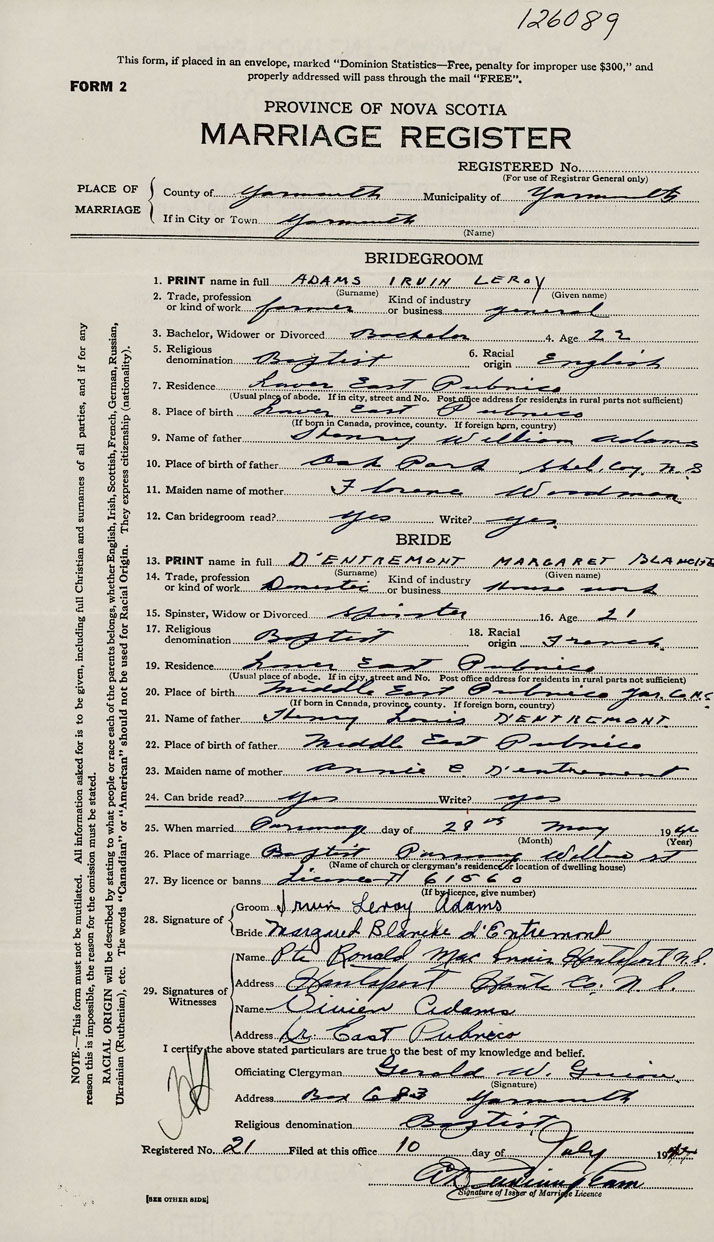 126089
This form, if placed in an envelope, marked "Dominion Statistics—Free, penalty for improper use $300," and
properly addressed will pass through the mail "FREE".
FORM 2
PROVINCE OF NOVA SCOTIA
MARRIAGE REGISTER
REGISTERED No.
(For use of Registrar General only)
PLACE OF MARRIAGE
County of Yarmouth Municipality of Yarmouth
If in City or Town Yarmouth
(Name)
BRIDEGROOM
1. PRINT name in full ADAMS IRVIN LEROY
(Surname) (Given name)
2. Trade, profession or kind of work farmer Kind of industry or business general
3. Bachelor, Widower or Divorced Bachelor 4. Age 22
5. Religious denomination Baptist 6. Racial origin English
7. Residence Lower East Pubnico
(Usual place of abode. If in city, street and No. Post office address for residents in rural parts not sufficient)
8. Place of birth Lower East Pubnico
(If born in Canada, province, county. If foreign born, country)
9. Name of father Henry William Adams
10. Place of birth of father Oak Park Shel. Coy. N.S
11. Maiden name of mother Florence Woodman
12. Can bridegroom read? yes Write? yes
BRIDE
13. PRINT name in full D'ENTREMONT MARGARET BLANCHE
(Surname) (Given name)
14. Trade, profession or kind of work Domestic Kind of industry or business House work
15. Spinster, Widow or Divorced Spinster 16. Age 21
17. Religious denomination Baptist 18. Racial origin French
19. Residence Lower East Pubnico
(Usual place of abode. If in city, street and No. Post office address for residents in rural parts not sufficient)
20. Place of birth Middle East Pubnico Yar. Co. N.S
(If born in Canada, province, county. If foreign born, country)
21. Name of father Henry Louis D'ENTREMONT
22. Place of birth of father Middle East Pubnico
23. Maiden name of mother Annie E D'entremont
24. Can bride read? Yes Write? yes
25. When married day of 28th May 1944
(Month) (Year)
26. Place of marriage Baptist Willow st
(Name of church or clergyman's residence or location of dwelling house)
27. By licence or banns Licence # 61560
(If by licence, give number)
28. Signature of
Groom Irvin Leroy Adams
Bride Margaret Blanche d'Entremont
29. Signatures of Witnesses
Name Pte Ronald Mac Innis Hantsport N.S.
Address Hantsport Hants Co. N.S.
Name Vivien Adams
Address Lr. East Pubnico
I certify the above stated particulars are true to the best of my knowledge and belief.
Officiating Clergyman Gerald W. Guiou
(Signature)
Address Box 683 Yarmouth
Religious denomination Baptist
Registered No. 21 Filed at this office 10 day of July 1944
Signature of Issuer of Marriage Licence
[SEE OTHER SIDE]
NOTE.—This form must not be mutilated. All information asked for is to be given, including full Christian and surnames of all parties, and if for any
reason this is impossible, the reason for the omission must be stated.
RACIAL ORIGIN will be described by stating to what people or race each of the parents belongs, whether English, Irish, Scottish, French, German, Russian,
Ukrainian (Ruthenian), etc. The words "Canadian" or "American" should not be used for Racial Origin. They express citizenship (nationality).